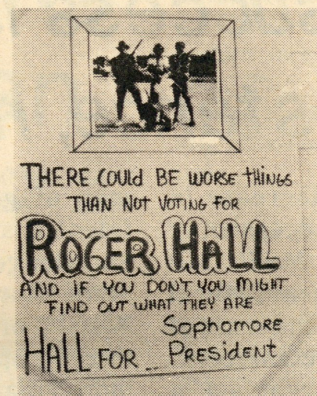 THERE COULD BE WORSE THINGS
THAN NOT VOTING FOR
ROGER HALL
AND IF YOU DON'T, YOU MIGHT
FIND OUT WHAT THEY ARE
Sophomore
HALL FOR .. President